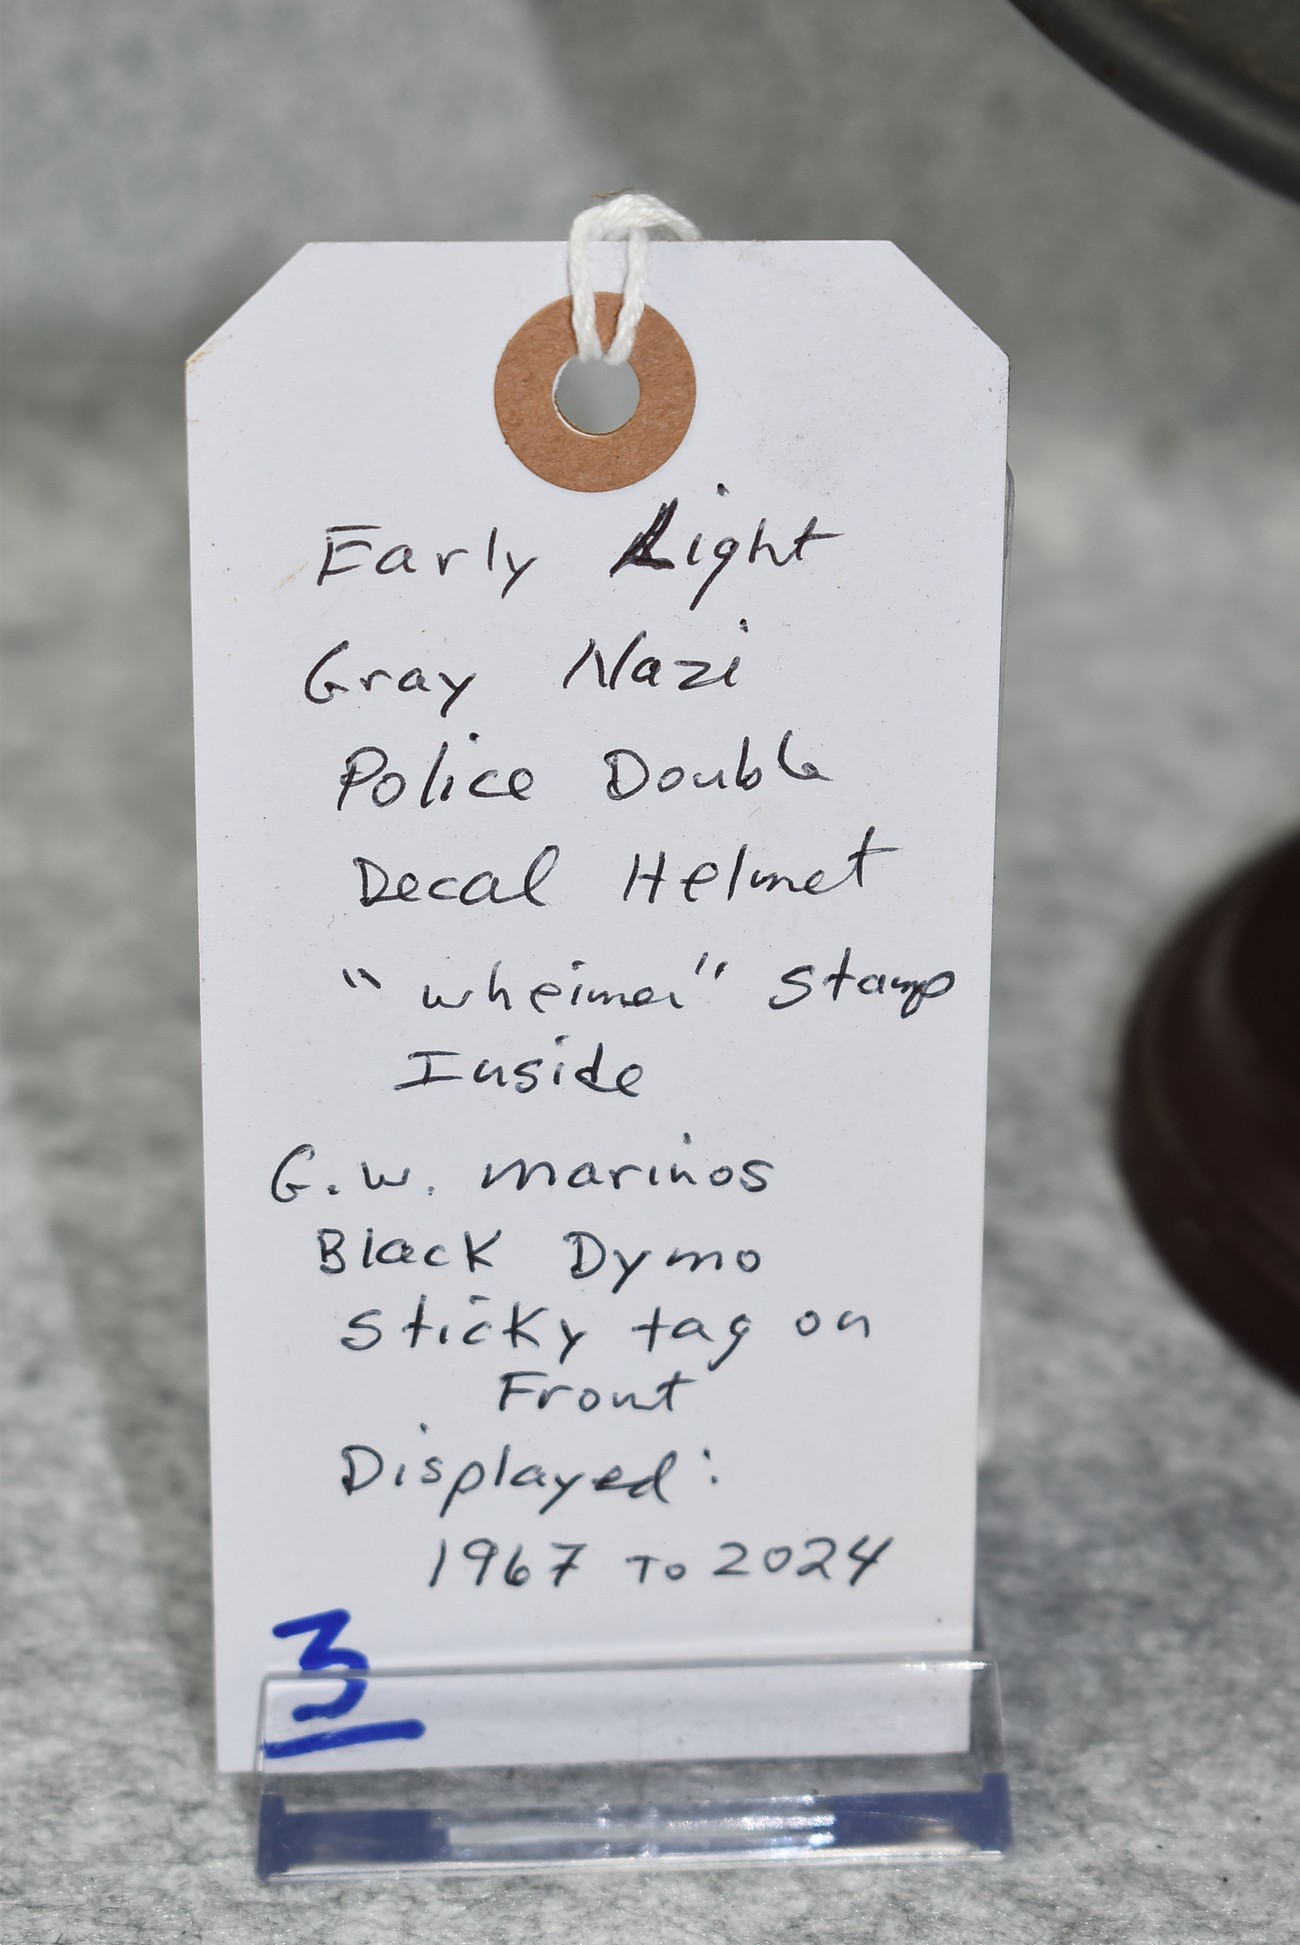 Early Light
Gray Nazi
Police Double
Decal Helmet
"wheimer" stamp
Inside
G.W. Marinos
Black Dymo
sticky tag on
Front
Displayed:
1967 To 2024
3